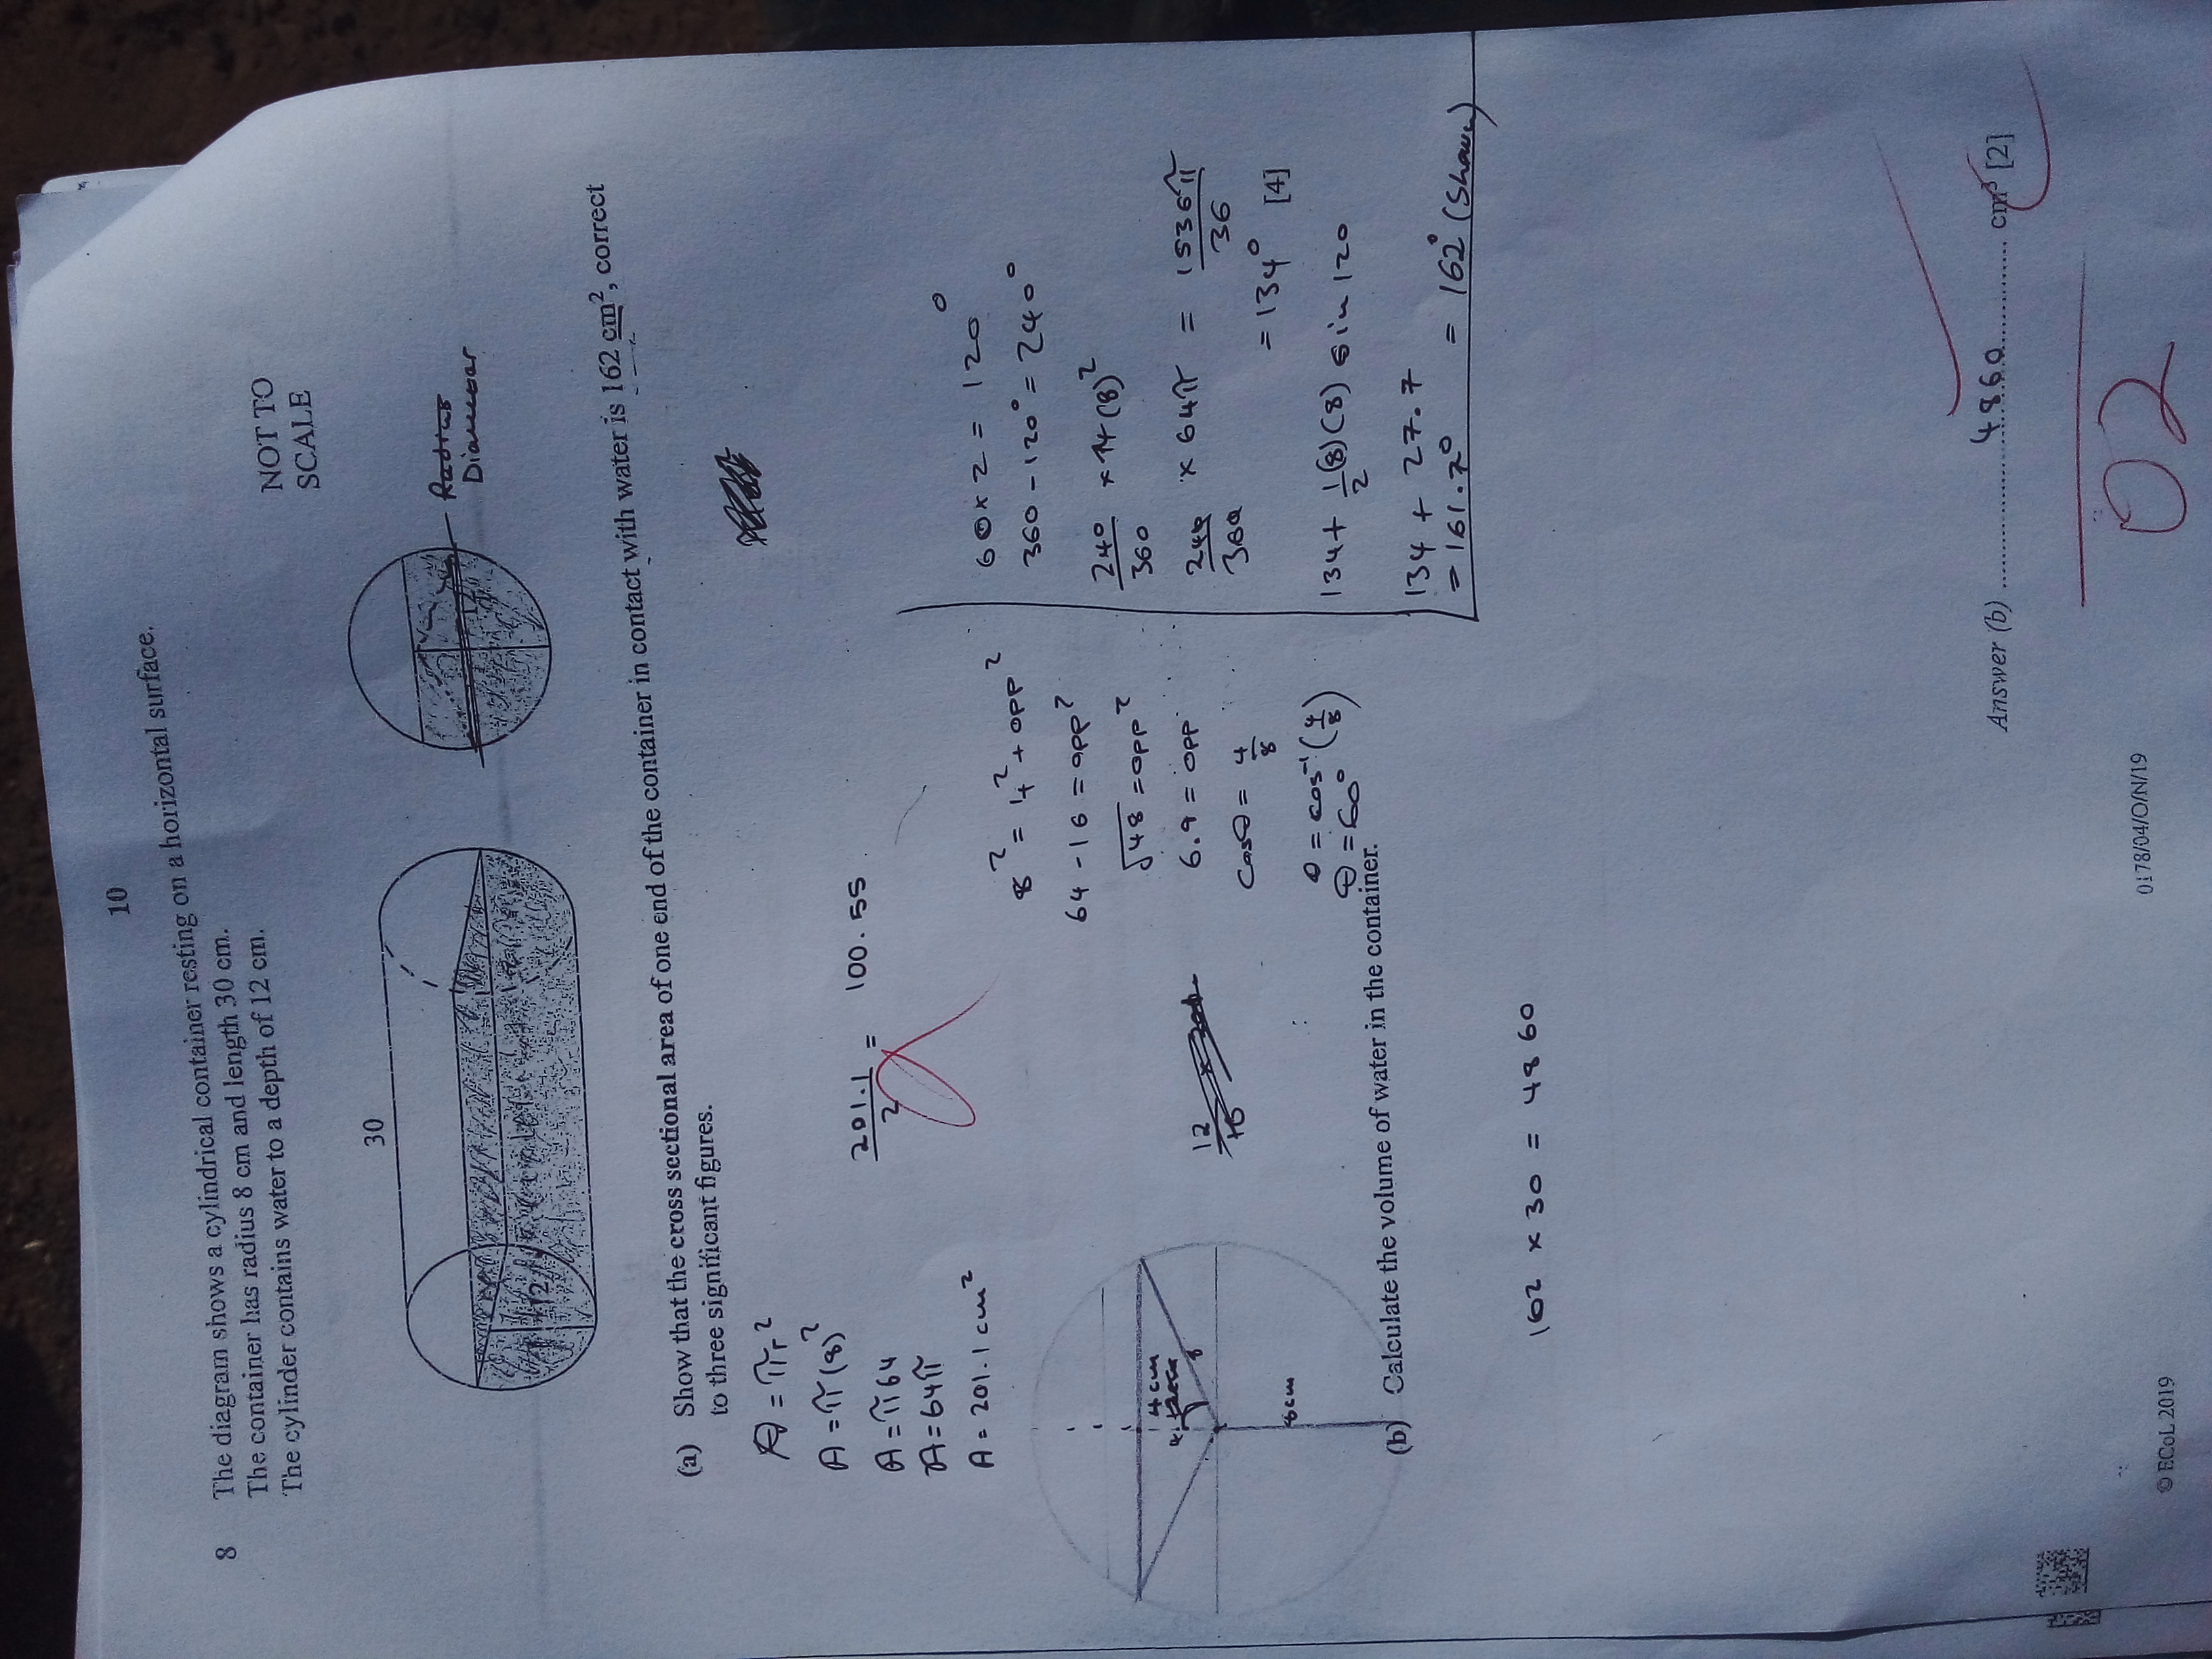 10
8 The diagram shows a cylindrical container resting on a horizontal surface.
The container has radius 8 cm and length 30 cm.
The cylinder contains water to a depth of 12 cm.
NOT TO
SCALE
30
12
12
Radius
Diameter
(a) Show that the cross sectional area of one end of the container in contact with water is 162 cm², correct
to three significant figures.
A = πr²
A = π(8)²
A = π64
A = 64π
A = 201.1 cm²
201.1/2 = 100.55
4cm
8
8cm
12/16 ×
8² = 4² + opp²
64 - 16 = opp²
√48 = opp²
6.9 = opp
cosθ = 4/8
θ = cos⁻¹(4/8)
θ = 60°
60 × 2 = 120°
360 - 120° = 240°
240/360 × π(8)²
240/360 × 64π = 1536π/36
= 134° [4]
134 + 1/2(8)(8) sin 120
134 + 27.7
= 161.7° = 162° (Shown)
(b) Calculate the volume of water in the container.
162 × 30 = 4860
Answer (b) 4860 cm³ [2]
02
© ECoL 2019
0178/04/O/N/19